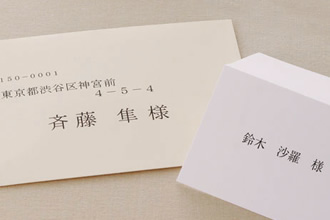 150-0001
東京都渋谷区神宮前
4-5-4
斉藤 隼 様
鈴木 沙羅 様